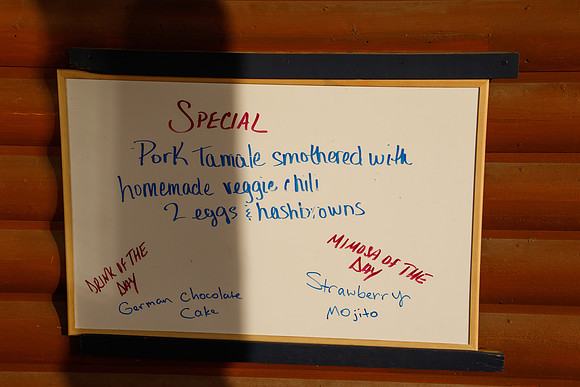 SPECIAL
Pork Tamale smothered with
homemade veggie chili
2 eggs & hashbrowns
DRINK OF THE
DAY
German Chocolate
Cake
MIMOSA OF THE
DAY
Strawberry
Mojito